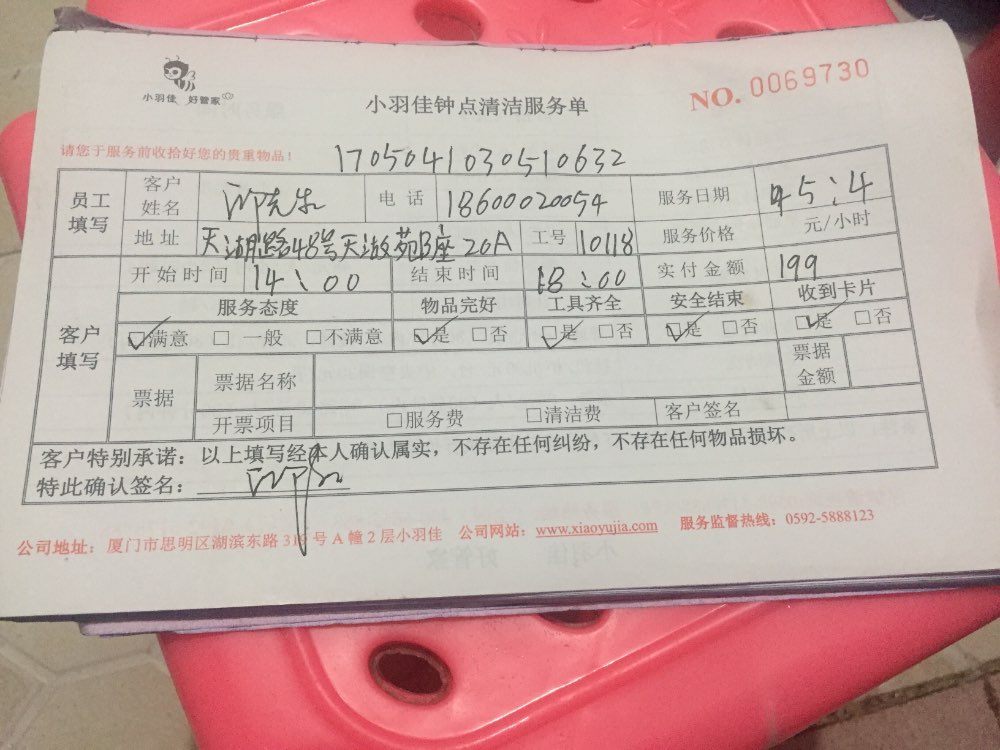 小羽佳 好管家
小羽佳钟点清洁服务单
NO. 0069730
请您于服务前收拾好您的贵重物品！
170504103051 0632
员工填写 客户姓名 电话 18600020054 服务日期 4
地址 天湖路48号天湖苑B座20A 工号 10118 服务价格 元/小时
客户填写 开始时间 14:00 结束时间 18:00 实付金额 199
服务态度 物品完好 工具齐全 安全结束 收到卡片
☑满意 □ 一般 □不满意 ☑是 □否 ☑是 □否 ☑是 □否 ☑是 □否
票据 票据名称 票据金额
开票项目 □服务费 □清洁费 客户签名
客户特别承诺：以上填写经本人确认属实，不存在任何纠纷，不存在任何物品损坏。
特此确认签名：
公司地址：厦门市思明区湖滨东路319号A幢2层小羽佳 公司网站：www.xiaoyujia.com 服务监督热线：0592-5888123